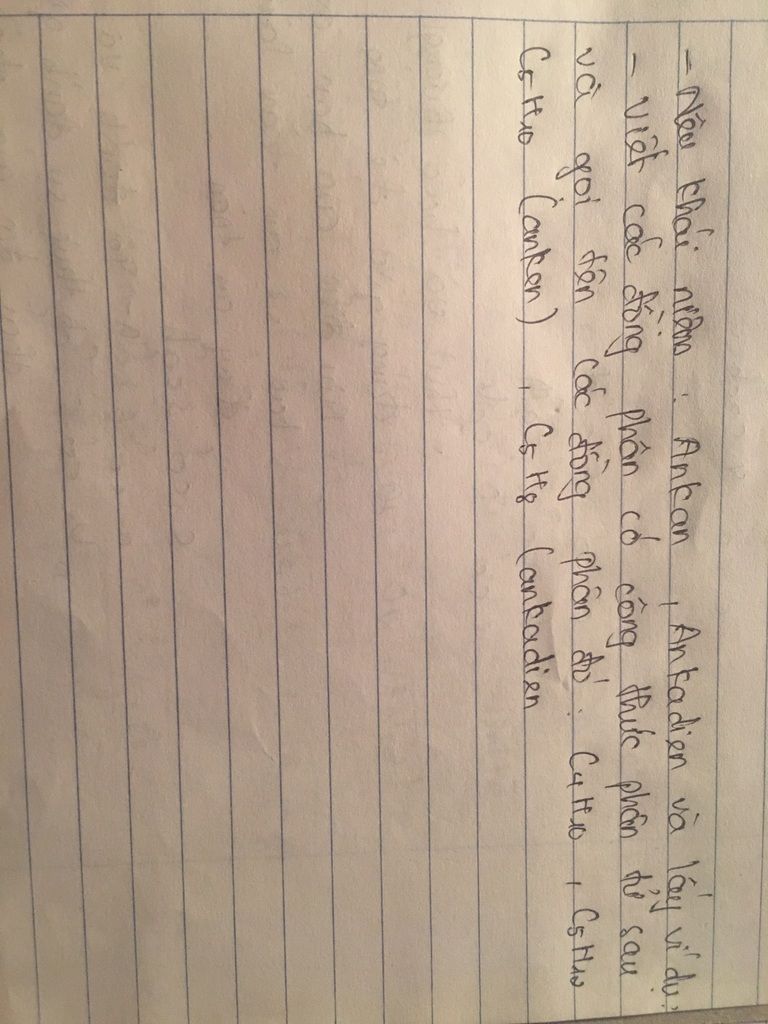 - Nêu khái niệm : Ankan , Ankadien và lấy ví dụ:
- Viết các đồng phân có công thức phân tử sau
và gọi tên các đồng phân đó : C₄H₁₀ , C₅H₁₀
C₅H₁₀ (anken) , C₅H₈ (ankadien